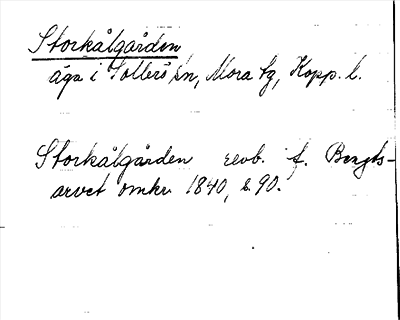 Storkålgården
äga i Sollerö sn, Mora tg, Kopp. l.
Storkålgården revb. f. Bengts-
arvet omkr 1840, s. 90.